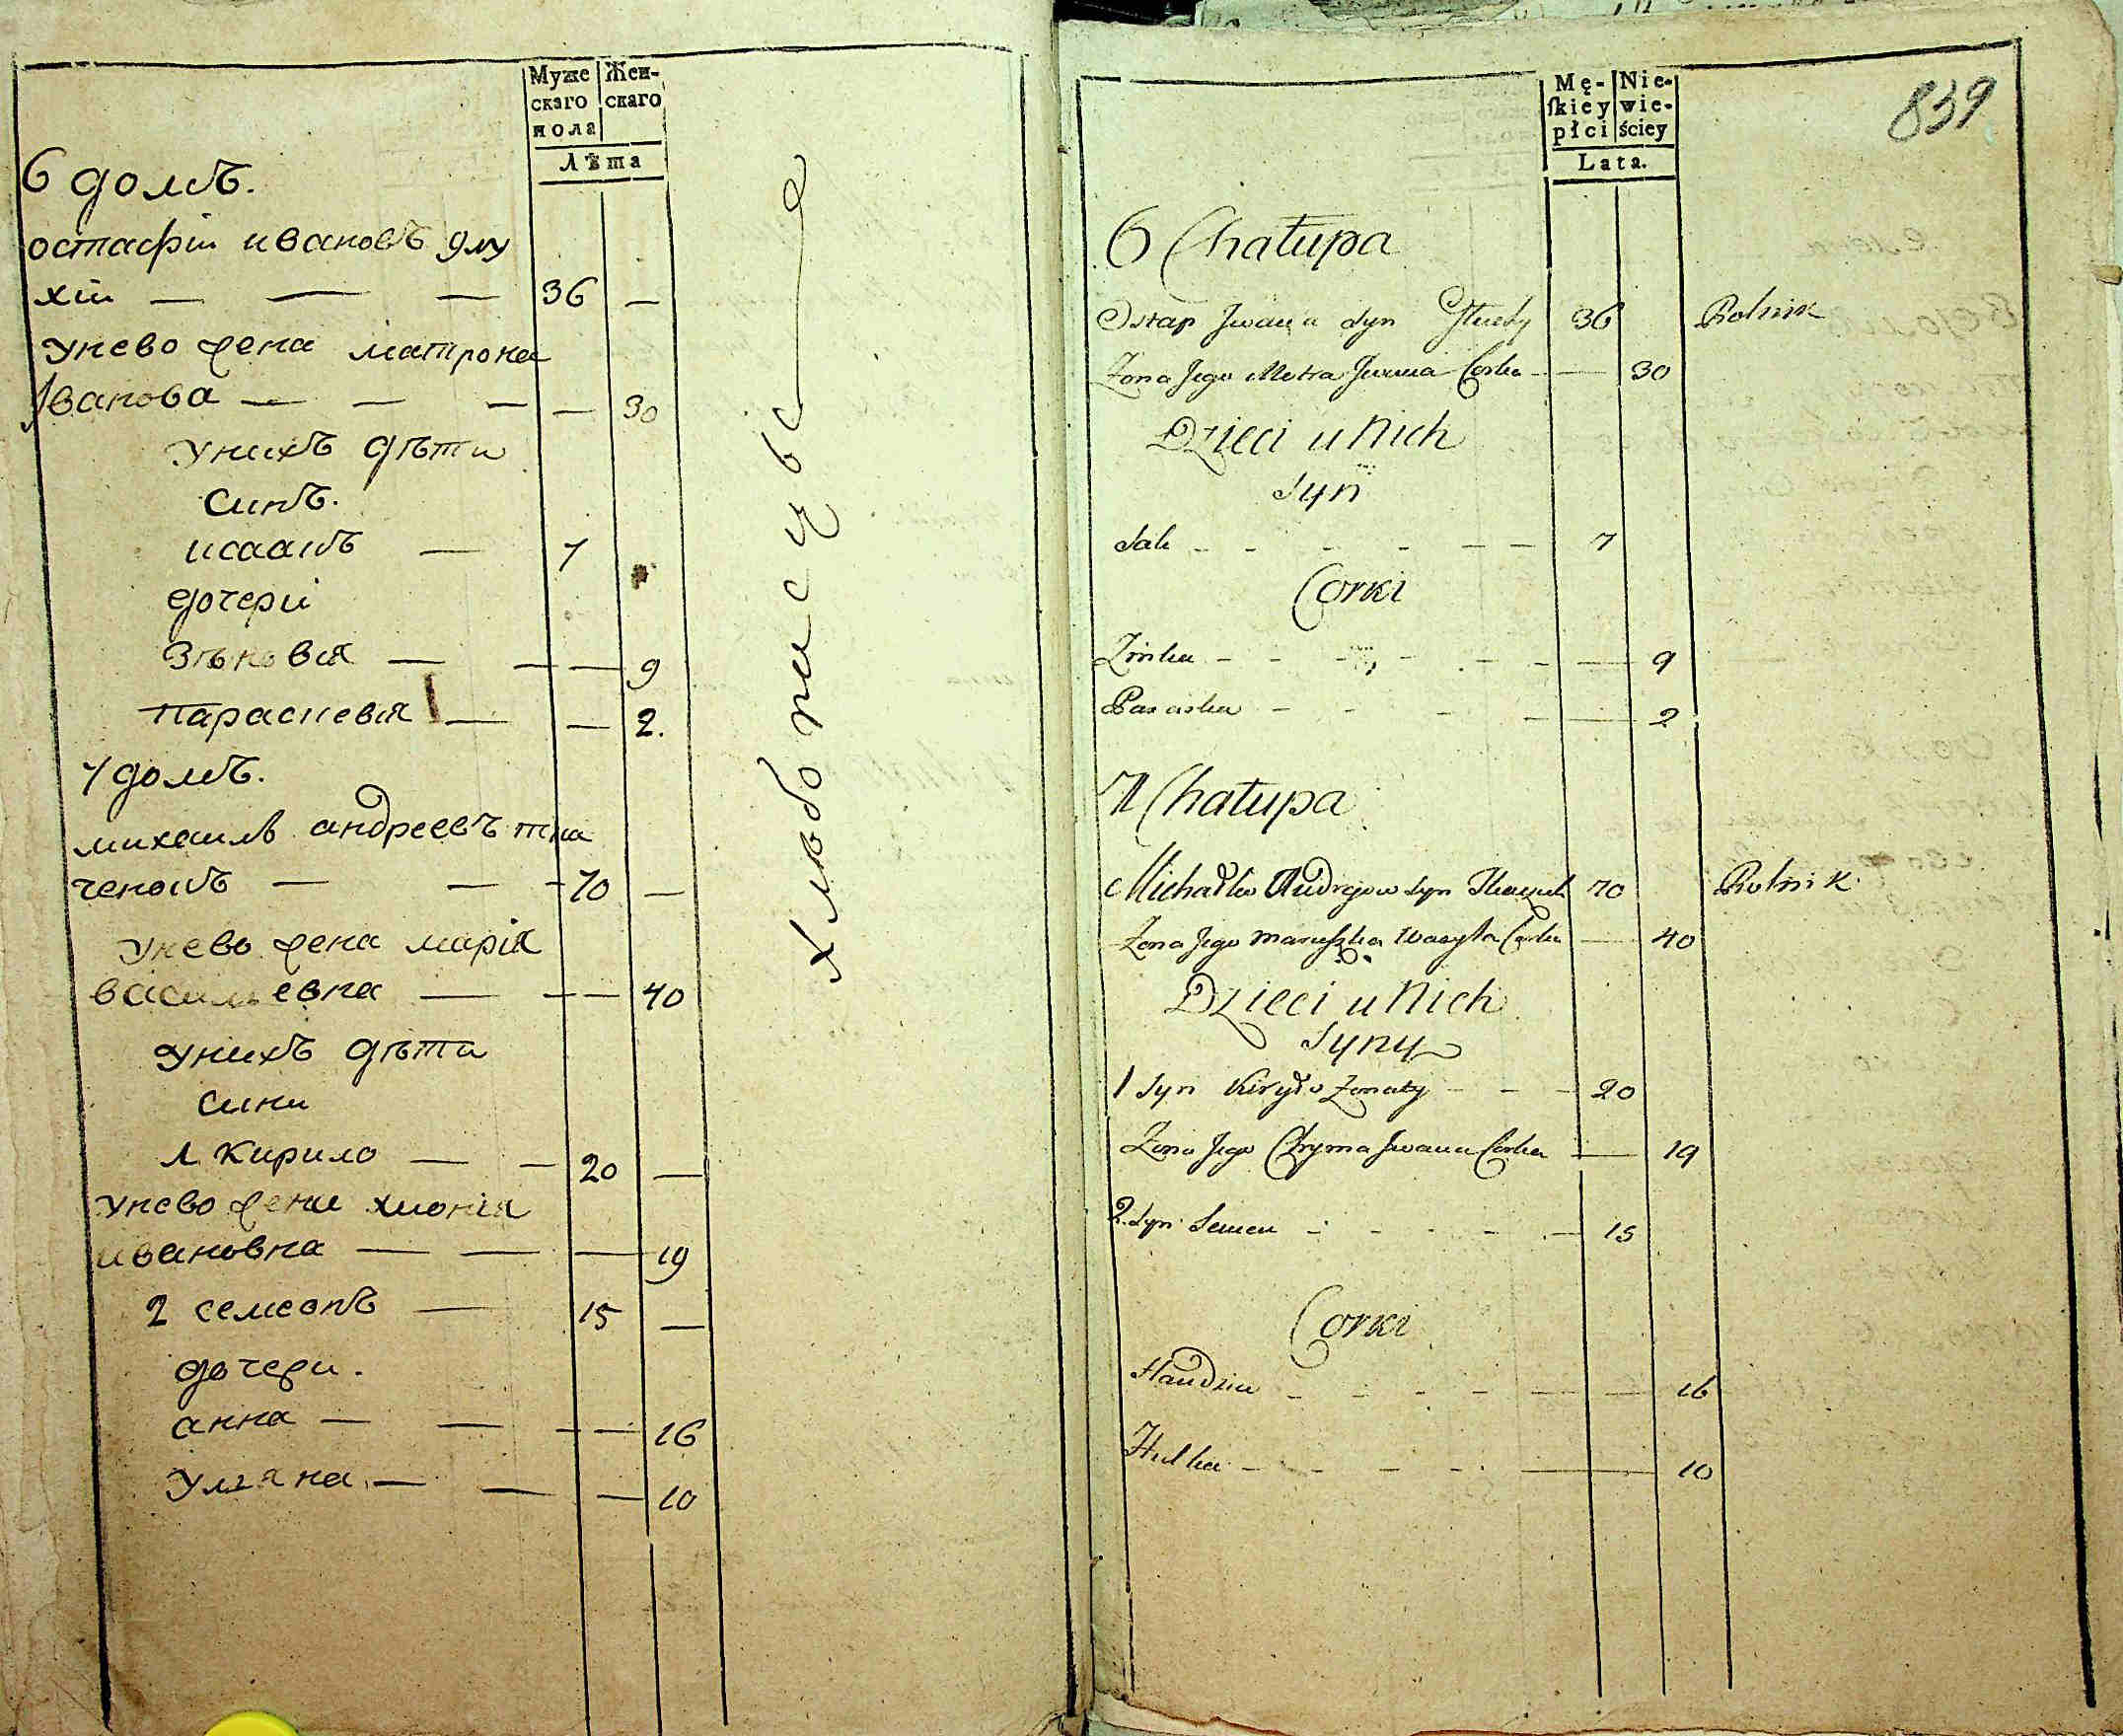 Муже
скаго
пола
Жен-
скаго
Лѣта
6 домъ.
остафiи ивановъ глу
хiи — — — 36 —
унево жена матрона
Iванова — — — — 30
унихъ дѣти
синъ.
исаакъ — 7
дочерiи
Зѣновiя — — — 9
Параскевiя — — 2.
7 домъ.
михаилъ андреевъ тка
ченокъ — — - 70 —
унево жена марiя
васильевна — — — 40
унихъ дѣти
сини
1 Кирило — — 20 —
унево жени хионiя
ивановна — — — 19
2 семеонъ — 15 —
дочери.
анна — — — — 16
Улiяна — — — 10
хлѣбописцы
Mę-
skiey
płci
Nie-
wie-
ściey
Lata.
839
6 Chałupa
Ostap Iwana Syn Głuchy 36 Rolnik
Zona Jego Motra Iwana Corka — 30
Dzieci u Nich
Syn
Sak - - - - — — 7
Corki
Zinka - - - - - - - — 9
Paraska - - - - — 2
7 Chałupa
Michałko Andrejow Syn Tkaczuk 70 Rolnik
Zona Jego Maruszka Wasyla Corka — 40
Dzieci u Nich
Syny
1 Syn Kiryło Zonaty - - - 20
Zona Jego Chryma Iwana Corka — 19
2. Syn Semen - - - - — 15
Corki
Handzia - - - - — — 16
Hulka - - - - — — 10